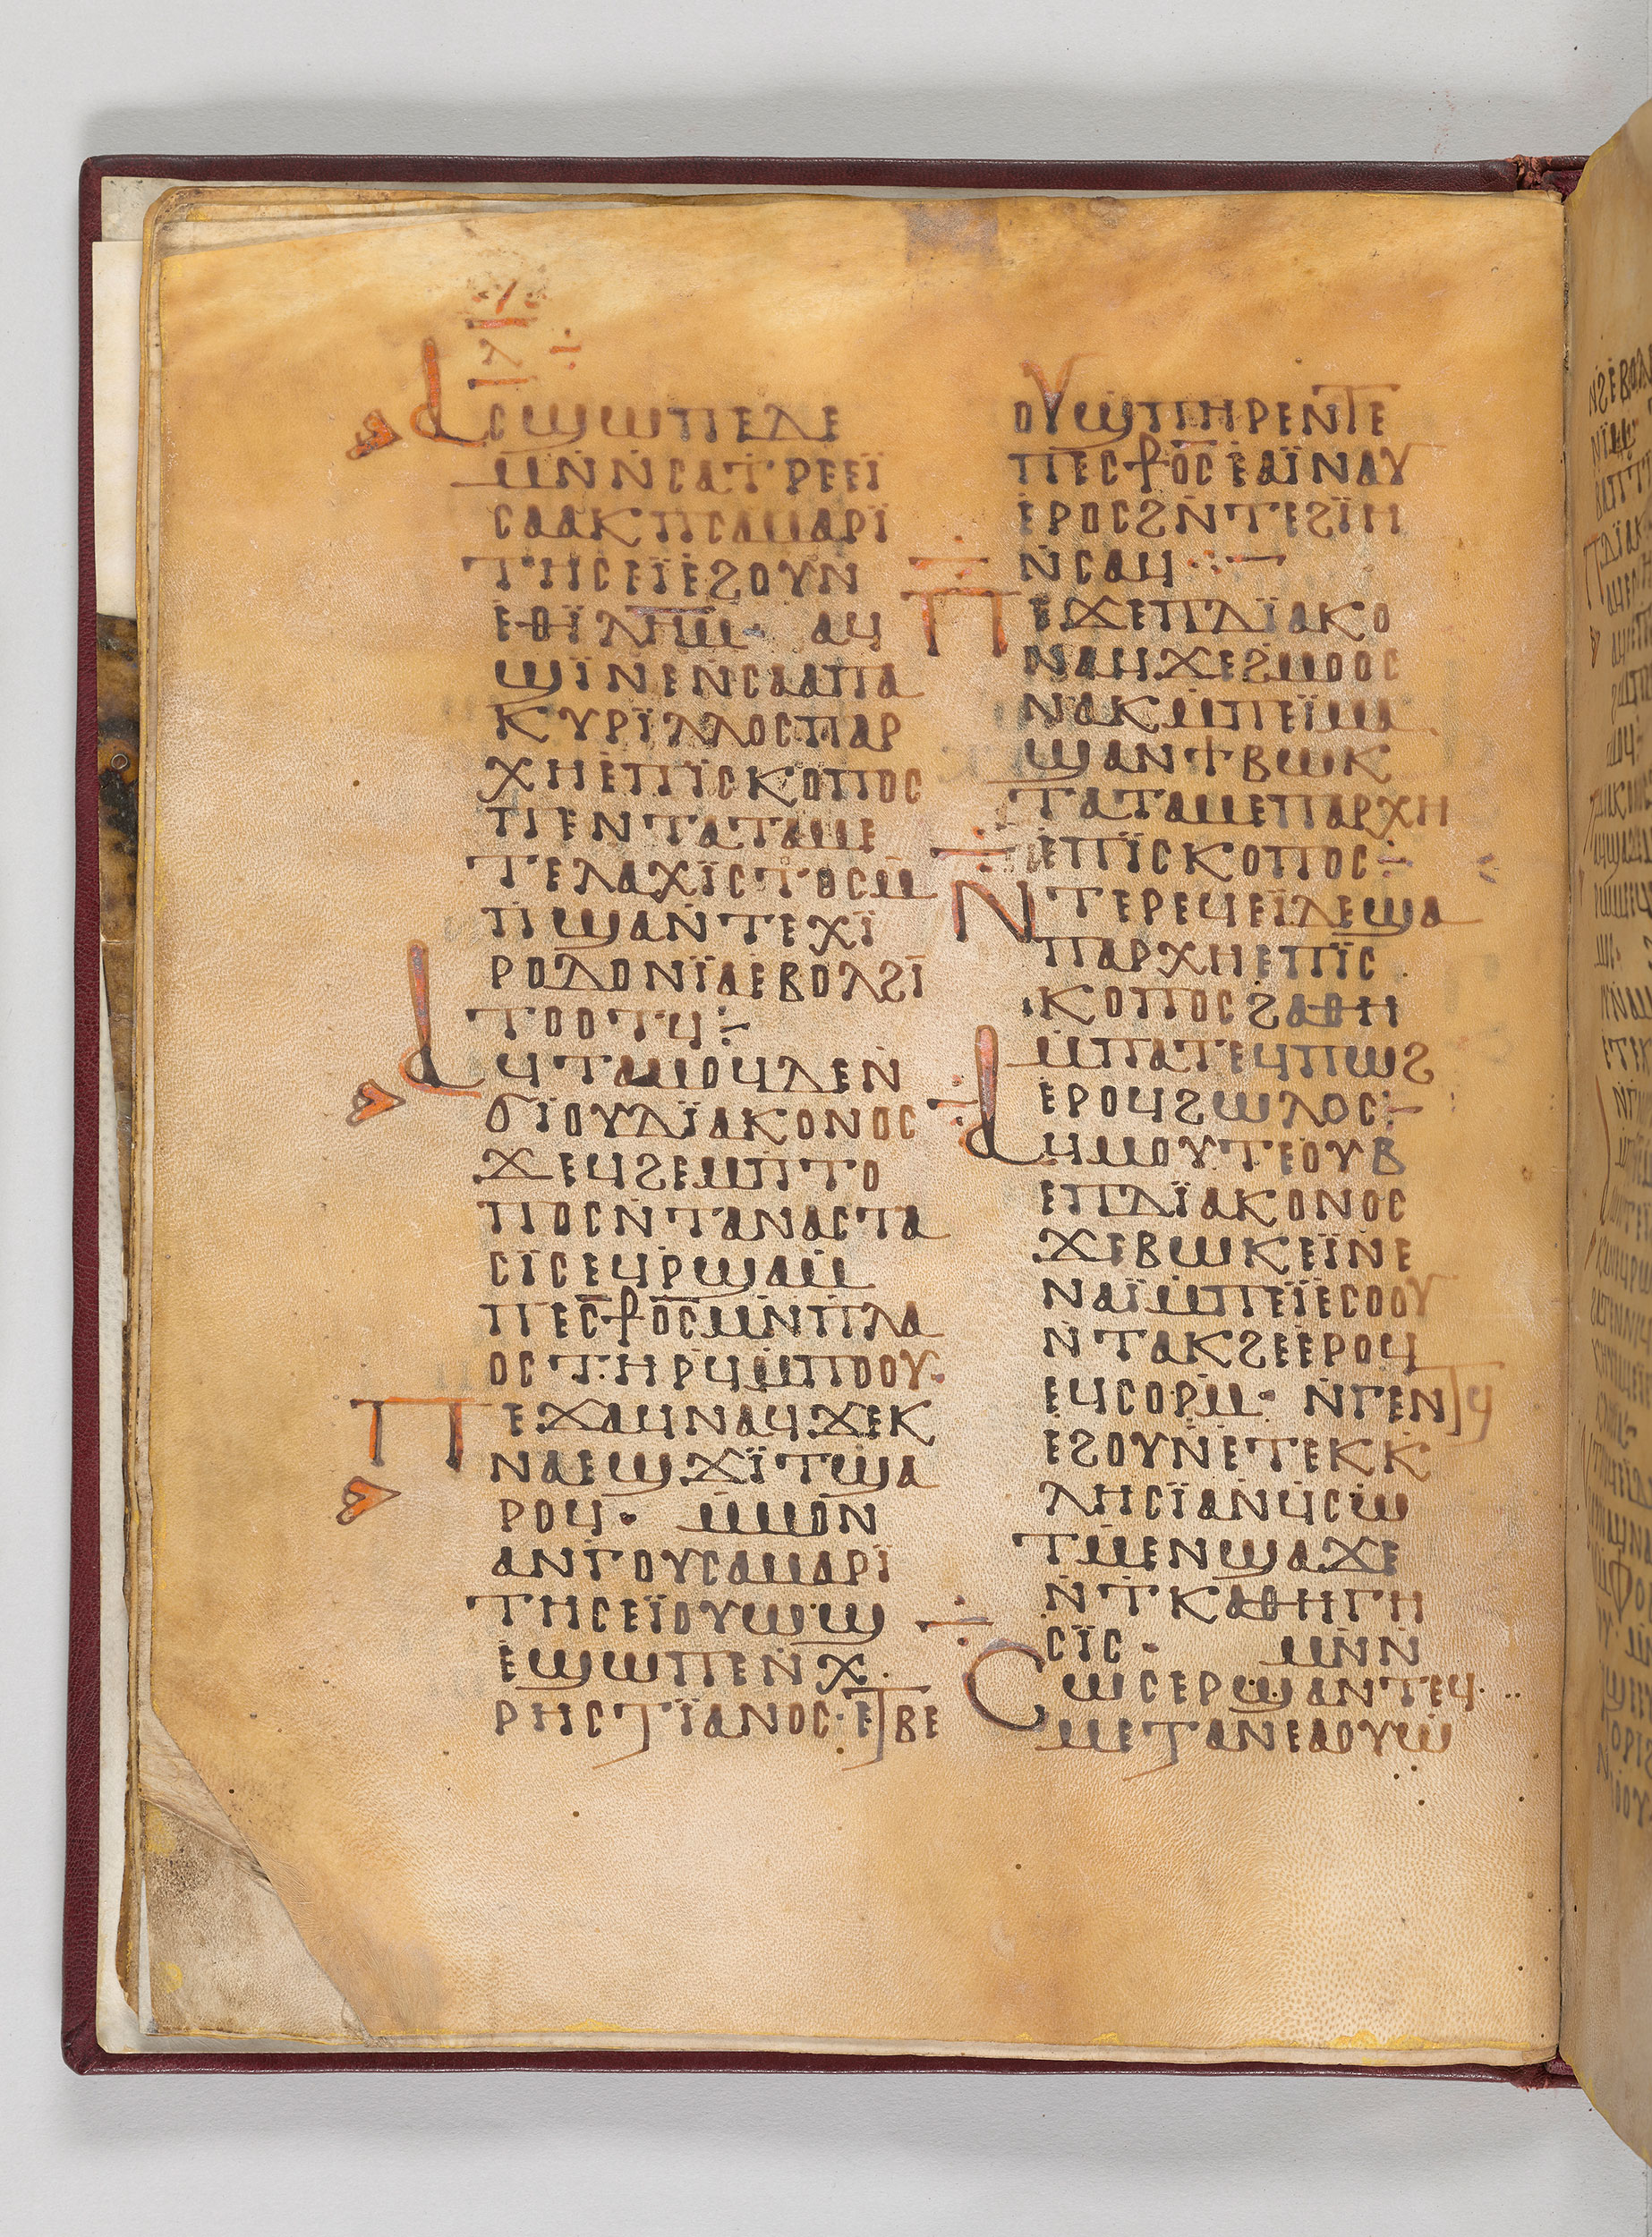 ⲗ̅
ⲁⲥϣⲱⲡⲉⲇⲉ
ⲙⲛ̄ⲛ̄ⲥⲁⲧⲣⲉⲉⲓ̈
ⲥⲁⲁⲕⲡⲥⲁⲙⲁⲣⲓ̈
ⲧⲏⲥⲉⲓ̈ⲉϩⲟⲩⲛ
ⲉⲑⲓ̈ⲗⲏⲙ̅· ⲁϥ
ϣⲓ̈ⲛⲉⲛ̄ⲥⲁⲁⲡⲁ
ⲕⲩⲣⲓ̈ⲗⲗⲟⲥⲡⲁⲣ
ⲭⲏⲉⲡⲓ̈ⲥⲕⲟⲡⲟⲥ
ⲡⲉⲛⲧⲁⲧⲁⲙⲉ
ⲧⲉⲗⲁⲭⲓ̈ⲥⲧⲟⲥⲙ̄
ⲡϣⲁⲛ̄ⲧⲉⲭⲓ̈
ⲣⲟⲇⲟⲛⲓ̈ⲁⲉⲃⲟⲗϩⲓ̈
ⲧⲟⲟⲧϥ÷
ⲁϥⲧⲁⲙⲟϥⲇⲉⲛ̄
ϭⲓⲟⲩⲇⲓ̈ⲁⲕⲟⲛⲟⲥ
ϫⲉϥϩⲉⲙⲡⲧⲟ
ⲡⲟⲥⲛ̄ⲧⲁⲛⲁⲥⲧⲁ
ⲥⲓ̈ⲥⲉϥⲣ̄ϣⲁⲙ̄
ⲡⲉⲥ⳨ⲟⲥⲙⲛ̄ⲡⲗⲁ
ⲟⲥⲧⲏⲣϥⲙ̄ⲡⲟⲟⲩ·
ⲡⲉϫⲁϥⲛⲁϥϫⲉⲕ
ⲛⲁⲉϣϫⲓ̈ⲧϣⲁ
ⲣⲟϥ· ⲙ̄ⲙⲟⲛ
ⲁⲛⲅⲟⲩⲥⲁⲙⲁⲣⲓ̈
ⲧⲏⲥⲉⲓ̈ⲟⲩⲱϣ
ⲉϣⲱⲡⲉⲛ̄ⲭ
ⲣⲏⲥⲧⲓ̈ⲁⲛⲟⲥ·ⲉⲧⲃⲉ
ⲟⲩϣⲡⲏⲣⲉⲛⲧⲉ
ⲡⲉⲥ⳨ⲟⲥⲉⲁⲓ̈ⲛⲁⲩ
ⲉⲣⲟⲥϩⲛ̄ⲧⲉϩⲓ̈ⲏ
ⲛ̄ⲥⲁϥ
ⲡⲉϫⲉⲡⲇⲓ̈ⲁⲕⲟ
ⲛⲁϥϫⲉϩⲙⲟⲟⲥ
ⲛⲁⲕⲙ̄ⲡⲉⲓ̈ⲙⲁ
ϣⲁⲛϯⲃⲱⲕ
ⲧⲁⲧⲁⲙⲉⲡⲁⲣⲭⲏ
ⲉⲡⲓ̈ⲥⲕⲟⲡⲟⲥ÷
ⲛ̄ⲧⲉⲣⲉϥⲉⲓ̈ⲇⲉϣⲁ
ⲡⲁⲣⲭⲏⲉⲡⲓ̈ⲥ
ⲕⲟⲡⲟⲥϩⲁⲑⲏ
ⲙ̄ⲡⲁⲧⲉϥⲡⲱϩ
ⲉⲣⲟϥϩⲱⲗⲟⲥ÷
ⲁϥⲙⲟⲩⲧⲉⲟⲩⲃ
ⲉⲡⲇⲓ̈ⲁⲕⲟⲛⲟⲥ
ϫⲉⲃⲱⲕⲉⲓ̈ⲛⲉ
ⲛⲁⲓ̈ⲙ̄ⲡⲉⲓ̈ⲉⲥⲟⲟⲩ
ⲛ̄ⲧⲁⲕϩⲉⲉⲣⲟϥ
ⲉϥⲥⲟⲣⲙ̄· ⲛ̄ⲅⲉⲛⲧϥ
ⲉϩⲟⲩⲛ̄ⲉⲧⲉⲕⲕ
ⲗⲏⲥⲓ̈ⲁⲛ̄ϥⲥⲱ
ⲧⲙⲉⲛϣⲁϫⲉ
ⲛ̄ⲧⲕⲁⲑⲏⲅⲏ
ⲥⲓ̈ⲥ· ⲙⲛ̄ⲛ̄
ⲥⲱⲥⲉⲣϣⲁⲛⲧⲉϥ
ⲙⲉⲧⲁⲛⲉⲁⲟⲩⲱ